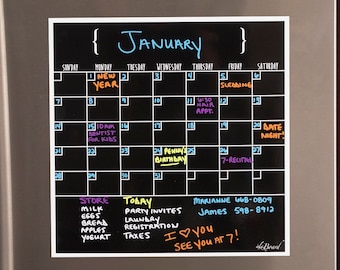 { JANUARY }
SUNDAY MONDAY TUESDAY WEDNESDAY THURSDAY FRIDAY SATURDAY
1 NEW YEAR 2 3 4 5 SLEDDING 6
7 8 9 10 11 6:30 HAIR APPT. 12 13
14 15 10AM DENTIST FOR KIDS 16 17 18 19 20 DATE NIGHT!
21 22 23 24 PENNY'S BIRTHDAY 25 26 7-RECITAL 27
28 29 30 31
STORE TODAY MARIANNE 668-0809
MILK PARTY INVITES JAMES 598-8912
EGGS LAUNDRY
BREAD REGISTRATION I ♡ YOU
APPLES TAXES SEE YOU AT 7!
YOGURT